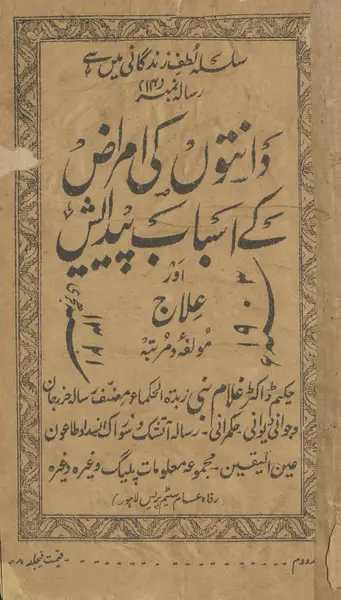 سلسلہ لطف زندگانی میں سے
رسالہ نمبر (۱۴)
دانتوں کی امراض
کے اسباب پیدایش
اور
علاج
۱۹۰۳ء
۱۳۲۱ ہجری
مولفہ و مرتبہ
حکیم ڈاکٹر غلام نبی زبدۃ الحکماء مصنف رسالہ حرز جان
و جوانی دیوانی حکمرانی۔ رسالہ آتشک و سوزاک انسداد طاعون
عین الیقین۔ مجموعہ معلومات پلیگ وغیرہ وغیرہ
(رفاہ عام سٹیم پریس لاہور)
دوم
قیمت فیجلد ۸